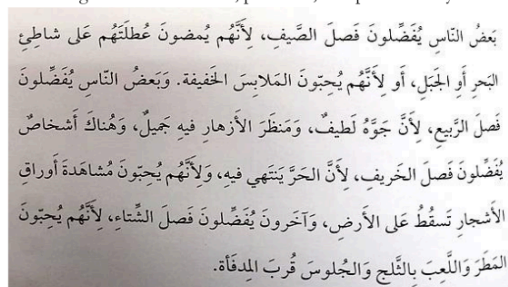 بَعضُ النّاسِ يُفَضِّلونَ فَصلَ الصَّيفِ، لِأَنَّهُم يُمضونَ عُطلَتَهُم عَلى شاطِئِ
البَحرِ أَو الجَبَلِ، أَو لِأَنَّهُم يُحِبّونَ المَلابِسَ الخَفيفة. وَبَعضُ النّاسِ يُفَضِّلونَ
فَصلَ الرَّبيعِ، لِأَنَّ جَوَّهُ لَطيفٌ، وَمَنظَرَ الأَزهارِ فيهِ جَميلٌ، وَهُناكَ أَشخاصٌ
يُفَضِّلونَ فَصلَ الخَريفِ، لِأَنَّ الحَرَّ يَنتَهي فيهِ، وَلِأَنَّهُم يُحِبّونَ مُشاهَدةَ أَوراقِ
الأَشجارِ تَسقُطُ عَلى الأَرضِ، وَآخَرونَ يُفَضِّلونَ فَصلَ الشِّتاءِ، لِأَنَّهُم يُحِبّونَ
المَطَرَ وَاللَّعِبَ بِالثَّلجِ وَالجُلوسَ قُربَ المِدفَأة.